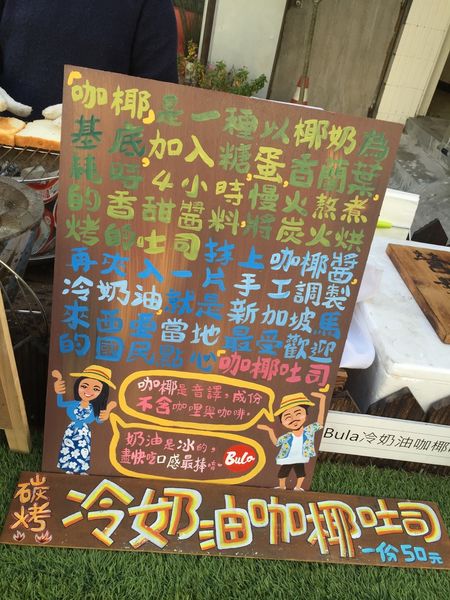 「咖椰」是一種以椰奶為
基底,加入糖,蛋,香蘭葉,
耗時4小時,慢火熬煮
的香甜醬料,將炭火烘
烤的吐司抹上咖椰醬,
再夾入一片手工調製
冷奶油,就是新加坡馬
來西亞當地最受歡迎
的國民點心「咖椰吐司」
咖椰是音譯,成份
不含咖哩與咖啡。
奶油是冰的,
盡快吃口感最棒唷
Bula
Bula冷奶油咖椰
碳烤
冷奶油咖椰吐司
一份50元